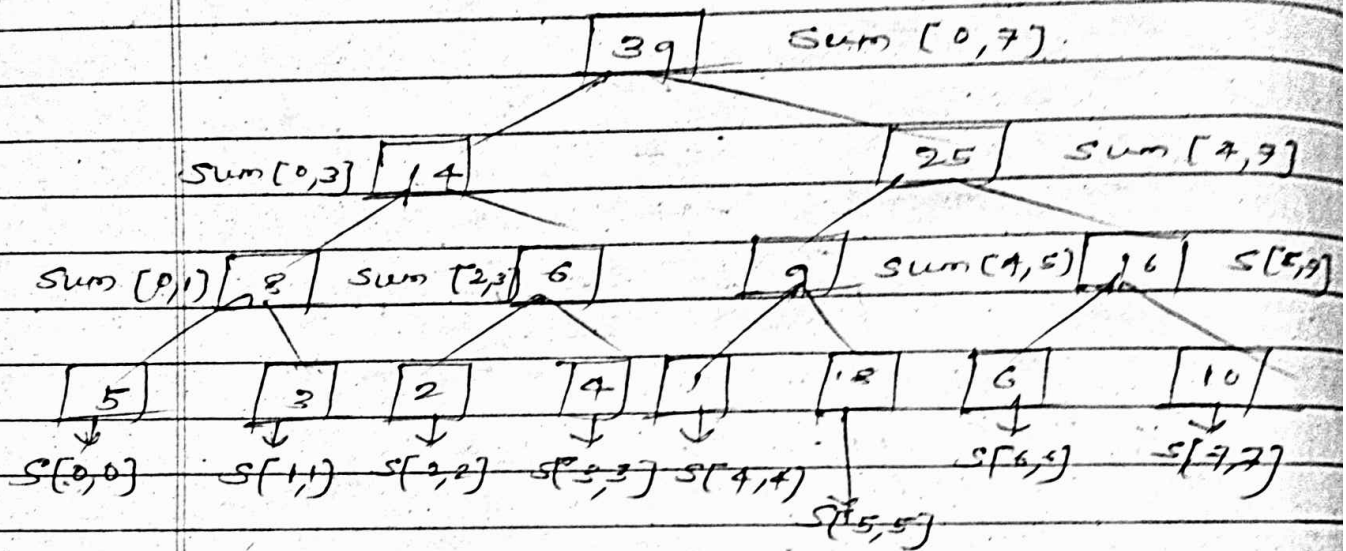 39 Sum [0,7].
Sum [0,3] 14 25 Sum [4,7]
Sum [0,1] 8 Sum [2,3] 6 9 Sum [4,5] 16 S[5,7]
5 3 2 4 1 8 6 10
S[0,0] S[1,1] S[2,2] S[3,3] S[4,4] S[6,6] S[7,7]
S[5,5]